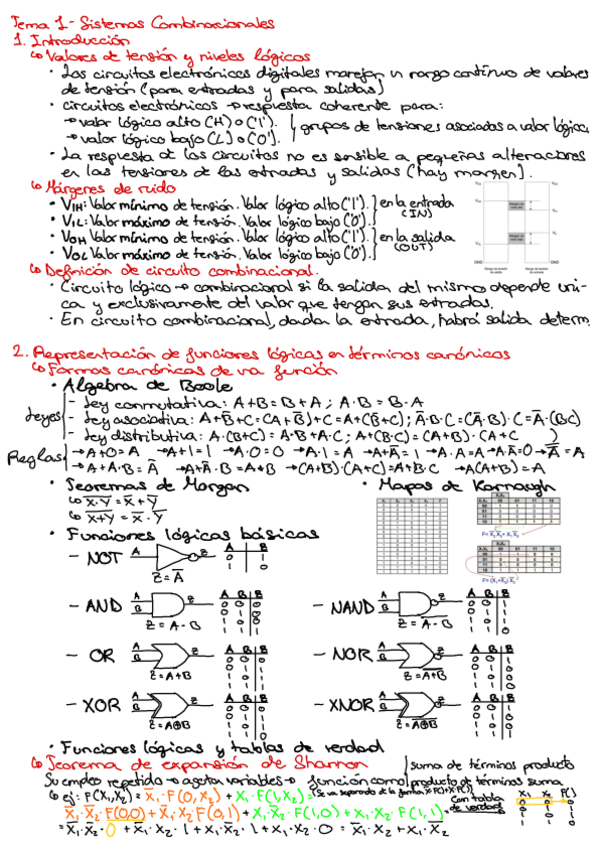 Tema 1 - Sistemas Combinacionales
1. Introducción
↳ Valores de tensión y niveles lógicos
• Los circuitos electrónicos digitales manejan un rango continuo de valores
de tensión (para entradas y para salidas)
• circuitos electrónicos → respuesta coherente para:
→ valor lógico alto (H) o ('1'). } grupos de tensiones asociadas a valor lógico.
→ valor lógico bajo (L) o ('0').
• La respuesta de los circuitos no es sensible a pequeñas alteraciones
en las tensiones de las entradas y salidas (hay margen).
↳ Márgenes de ruido
• VIH: Valor mínimo de tensión. Valor lógico alto ('1'). } en la entrada
• VIL: Valor máximo de tensión. Valor lógico bajo ('0'). (IN)
• VOH Valor mínimo de tensión. Valor lógico alto ('1'). } en la salida
• VOL Valor máximo de tensión. Valor lógico bajo ('0'). (OUT)
↳ Definición de circuito combinacional.
• Circuito lógico → combinacional si la salida del mismo depende úni-
ca y exclusivamente del valor que tengan sus entradas.
• En circuito combinacional, dada la entrada, habrá salida determ.
2. Representación de funciones lógicas en términos canónicos
↳ Formas canónicas de una función
• Algebra de Boole
Leyes
- Ley conmutativa: A+B = B+A ; A·B = B·A
- Ley asociativa: A+B̅+C = (A+B̅)+C = A+(B̅+C) ; A̅·B·C = (A̅·B)·C = A̅·(B·C)
- Ley distributiva: A·(B+C) = A·B+A·C ; A+(B·C) = (A+B)·(A+C)
Reglas
→ A+0=A → A+1=1 → A·0=0 → A·1=A → A+A̅=1 → A·A=A → A·A̅=0
→ (A+B)·(A+C)=A+B·C → A(A+B)=A
• Teoremas de Morgan • Mapas de Karnaugh
• Funciones lógicas básicas
- NOT A Z Z = A̅ A Z
- AND A B Z Z = A·B
- NAND A B Z
- OR A B Z Z = A+B
- NOR A B Z
- XOR A B Z Z = A⊕B
- XNOR A B Z
• Funciones lógicas y tablas de verdad
↳ Teorema de expansión de Shannon
Su empleo repetido → agota variables → función como
suma de términos producto
producto de términos suma
↳ ej: F(X₁,X₂) = X̅₁·F(0,X₂) + X₁·F(1,X₂) =
Con tabla de verdad X₁ X₂ F()
X̅₁·X̅₂·F(0,0) + X̅₁·X₂·F(0,1) + X₁·X̅₂·F(1,0) + X₁·X₂·F(1,1) =
= X̅₁·X̅₂·0 + X̅₁·X₂·1 + X₁·X̅₂·1 + X₁·X₂·0 = X̅₁·X₂ + X₁·X̅₂